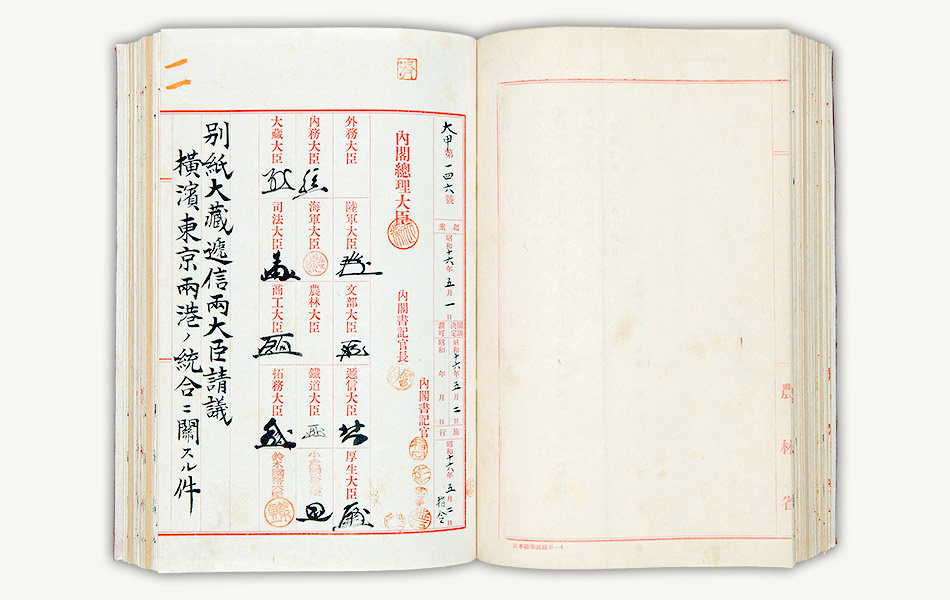 大甲第一四六號
起案 昭和十六年五月一日
閣議決定 昭和十六年五月二日
裁可 昭和 年 月 日
施行 昭和十六年五月二日
指令
內閣總理大臣
內閣書記官長
內閣書記官
外務大臣
陸軍大臣
文部大臣
遞信大臣
厚生大臣
內務大臣
海軍大臣
農林大臣
鐵道大臣
小倉國務大臣
大藏大臣
司法大臣
商工大臣
拓務大臣
鈴木國務大臣
別紙大藏遞信兩大臣請議
橫濱東京兩港ノ統合ニ關スル件
二
濟
農林省